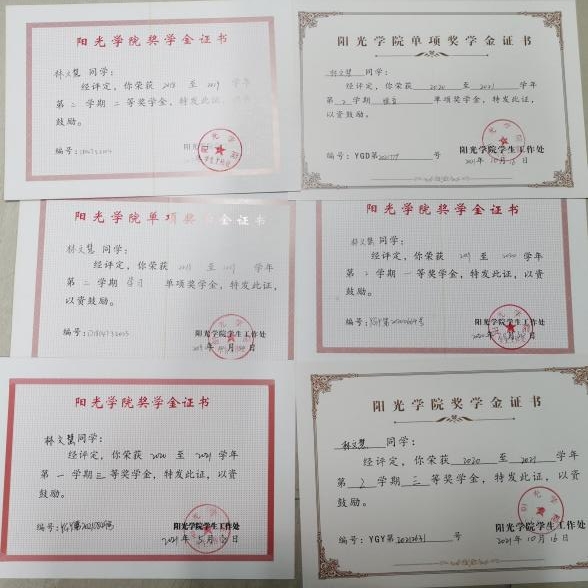 阳光学院奖学金证书
林文慧 同学：
经评定，你荣获 2018 至 2019 学年
第二学期二等奖学金，特发此证，
鼓励。
编号：
阳光学院单项奖学金证书
林文慧 同学：
经评定，你荣获 2020 至 2021 学年
第 2 学期 单项奖学金，特发此证，
以资鼓励。
编号：YGD第 号
阳光学院学生工作处
2021年 10 月 16 日
阳光学院单项奖学金证书
林文慧 同学：
经评定，你荣获 2018 至 2019 学年
第二学期 单项奖学金，特发此证，
以资鼓励。
编号：
阳光学院学生工作处
2019 年 月 日
阳光学院奖学金证书
林文慧 同学：
经评定，你荣获 2019 至 2020 学年
第 2 学期一等奖学金，特发此证，以资
鼓励。
编号：
阳光学院学生工作处
2020年 月 日
阳光学院奖学金证书
林文慧同学：
经评定，你荣获 2020 至 2021 学年
第一学期三等奖学金，特发此证，以资
鼓励。
编号：
阳光学院学生工作处
2021年 5 月 日
阳光学院奖学金证书
林文慧 同学：
经评定，你荣获 2020 至 2021 学年
第 2 学期 三 等奖学金，特发此证，以资
鼓励。
编号：YGY第 号
阳光学院学生工作处
2021年 10 月 16 日